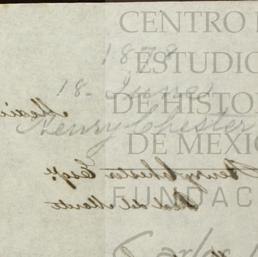 CENTRO
ESTUDIO
DE HISTO
DE MEXI
FUNDAC
1878
18- Junes
Henry Chester
Henry Chester Esqr.
Real del Monte